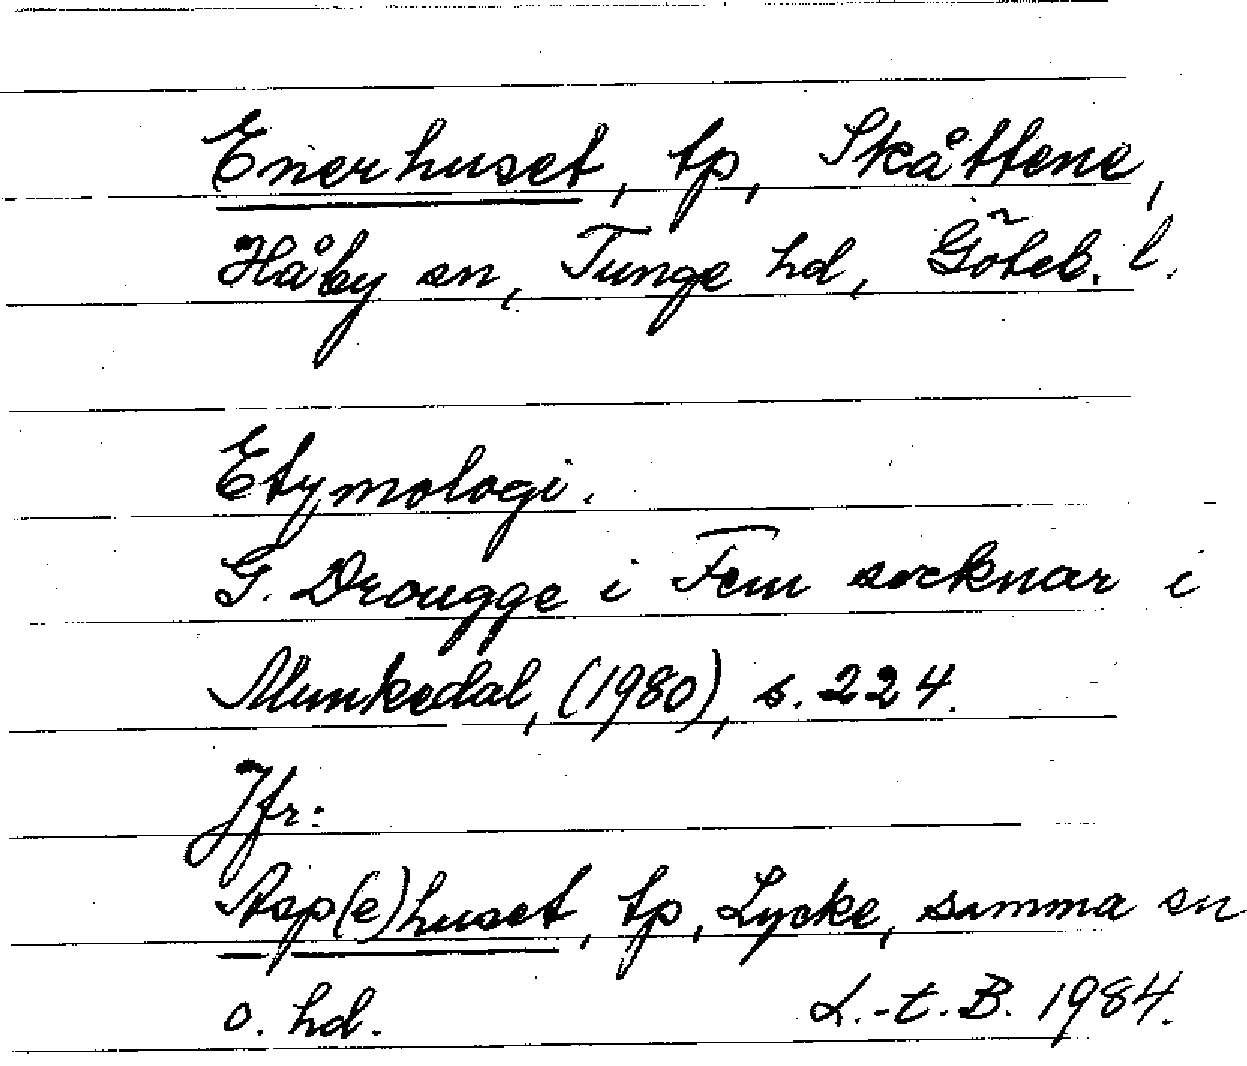 Enerhuset, tp, Skåttene,
Håby sn, Tunge hd, Göteb. l.
Etymologi.
G. Drougge i Fem socknar i
Munkedal, (1980), s. 224.
Jfr:
Asp(e)huset, tp, Lycke, samma sn
o. hd. L.-t. B. 1984.